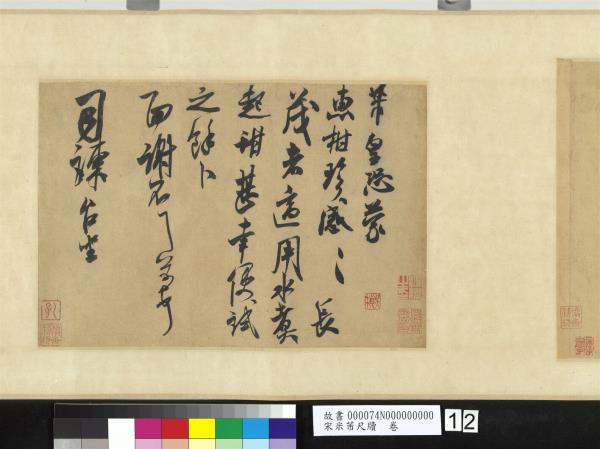 芾皇恐蒙
惠柑珍感〻長
茂者適用水煮
起甜甚幸便試
之餘卜
面謝不一芾頓首
司諫台坐
故書 000074N000000000
宋米芾尺牘 卷
12